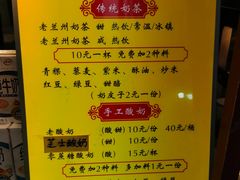 传统奶茶
老兰州奶茶 甜 热饮/常温/冰镇
老兰州奶茶 咸 热饮
10元一杯 免费加2种料
青稞、荞麦、紫米、酥油、炒米
红豆、绿豆、甜醅
(奶皮子2元一份)
手工酸奶
老酸奶 (酸甜) 10元/份 40元/桶
芝士酸奶 (甜) 10元/份
零蔗糖酸奶 (酸) 15元/杯
免费加2种料 多加料1元一份